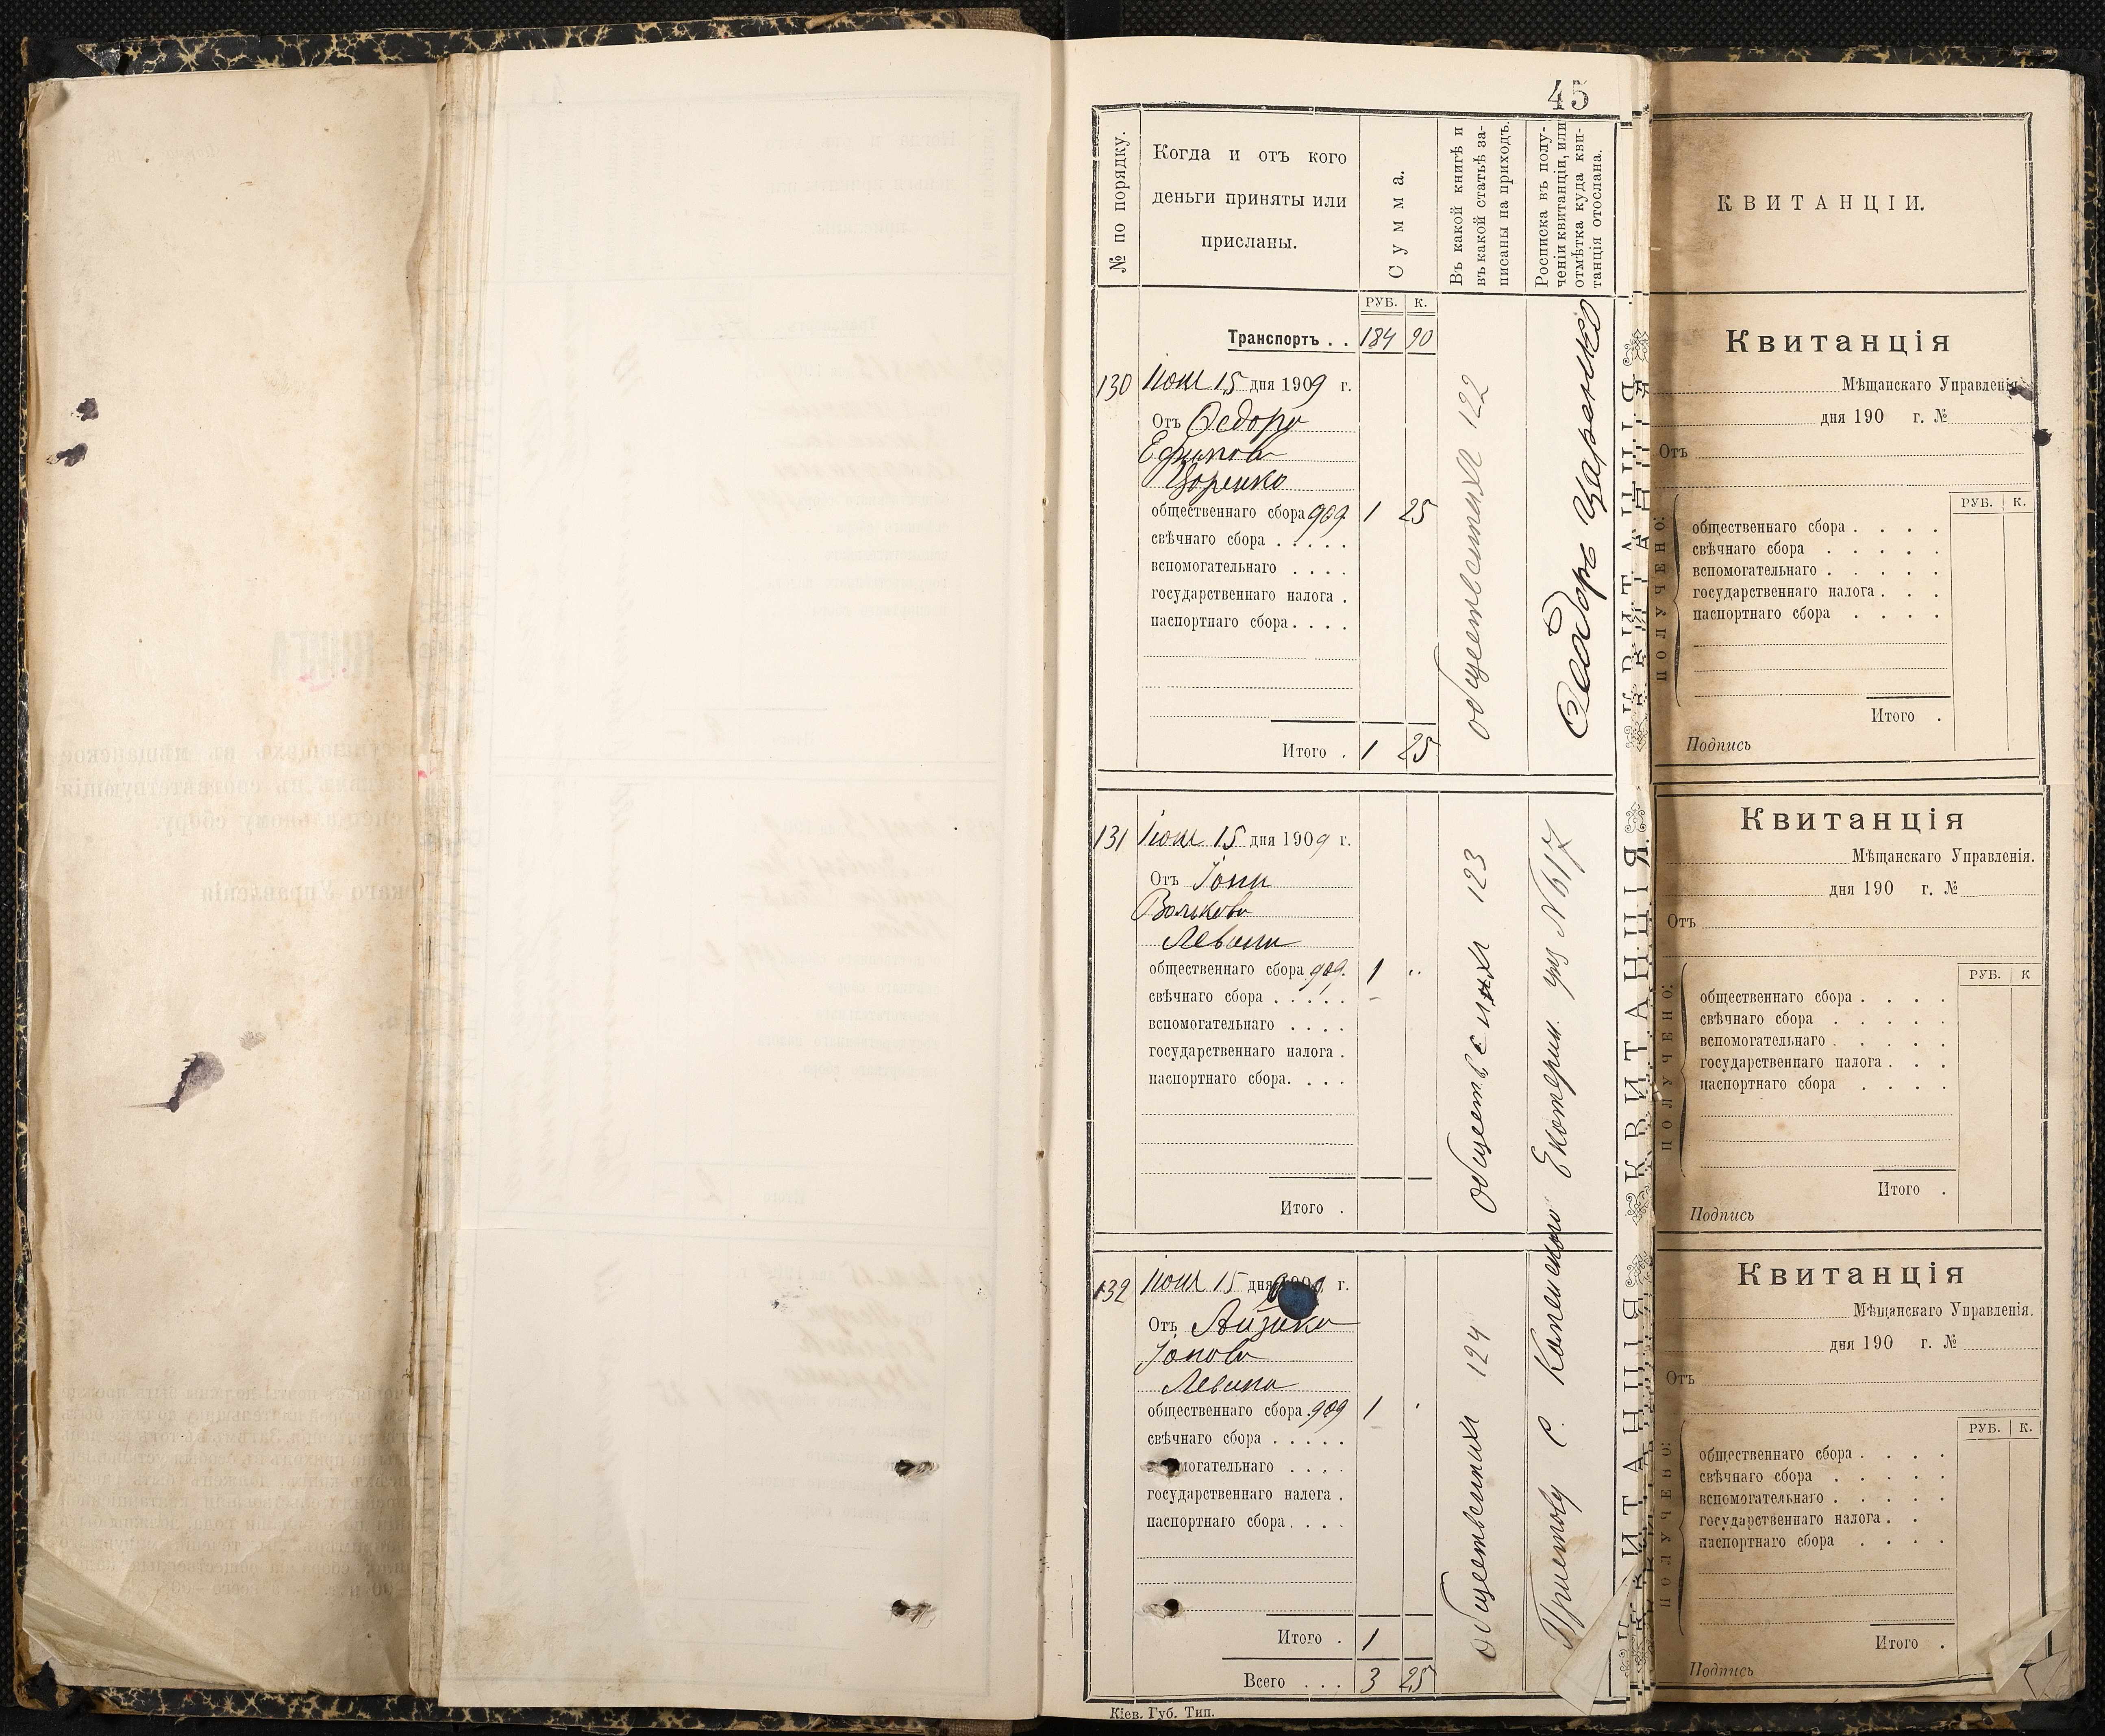 45
№ по порядку.
Когда и отъ кого
деньги приняты или
присланы.
Сумма.
Въ какой книгѣ и
въ какой статьѣ за-
писаны на приходъ.
Росписка въ полу-
ченіи квитанціи, или
отмѣтка куда кви-
танція отослана.
РУБ. К.
Транспортъ . . 184 90
130 Іюля 15 дня 1909 г.
Отъ Федора
Ефимова
Царенко
общественнаго сбора 909 1 25
свѣчнаго сбора . . . . .
вспомогательнаго . . . .
государственнаго налога .
паспортнаго сбора . . . .
Итого . 1 25
общественныхъ 122
Федоръ Царенко
131 Іюля 15 дня 1909 г.
Отъ Іоны
Волькова
Левина
общественнаго сбора 909. 1 "
свѣчнаго сбора . . . . .
вспомогательнаго . . . .
государственнаго налога .
паспортнаго сбора. . . .
Итого .
123
132 Іюля 15 дня 1909 г.
Отъ Айзика
Іонова
Левина
общественнаго сбора 909 1
свѣчнаго сбора . . . . .
вспомогательнаго . . . .
государственнаго налога .
паспортнаго сбора . . . .
Итого . 1
Всего . . . 3 25
общественныхъ 124
Приставу с. Каменского Екатерин. у. № 617
Кіев. Губ. Тип.
КВИТАНЦІЯ.
КВИТАНЦІЯ
КВИТАНЦІЯ
КВИТАНЦІИ.
Квитанція
Мѣщанскаго Управленія.
дня 190 г. №
Отъ
ПОЛУЧЕНО:
РУБ. К.
общественнаго сбора . . . .
свѣчнаго сбора . . . . .
вспомогательнаго . . . . .
государственнаго налога . . .
паспортнаго сбора . . . .
Итого .
Подпись
Квитанція
Мѣщанскаго Управленія.
дня 190 г. №
Отъ
ПОЛУЧЕНО:
РУБ. К
общественнаго сбора . . . .
свѣчнаго сбора . . . . .
вспомогательнаго . . . . .
государственнаго налога . . .
паспортнаго сбора . . . .
Итого .
Подпись
Квитанція
Мѣщанскаго Управленія.
дня 190 г. №
Отъ
ПОЛУЧЕНО:
РУБ. К.
общественнаго сбора . . . .
свѣчнаго сбора . . . . .
вспомогательнаго . . . . .
государственнаго налога . .
паспортнаго сбора . . . .
Итого .
Подпись